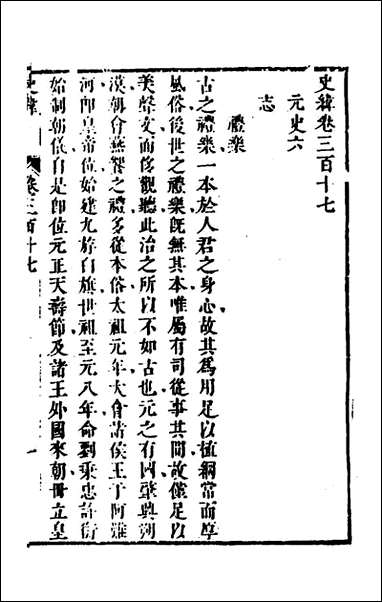 史緯卷三百十七
元史六
志
禮樂
古之禮樂一本於人君之身心故其爲用足以植綱常而厚
風俗後世之禮樂旣無其本唯屬有司從事其間故僅足以
美聲文而侈觀聽此治之所以不如古也元之有國肇興朔
漠朝會燕饗之禮多從本俗太祖元年大會諸侯王于阿難
河卽皇帝位始建九斿白旗世祖至元八年命劉秉忠許衡
始制朝儀自是卽位元正天壽節及諸王外國來朝冊立皇
史緯
卷三百十七
一